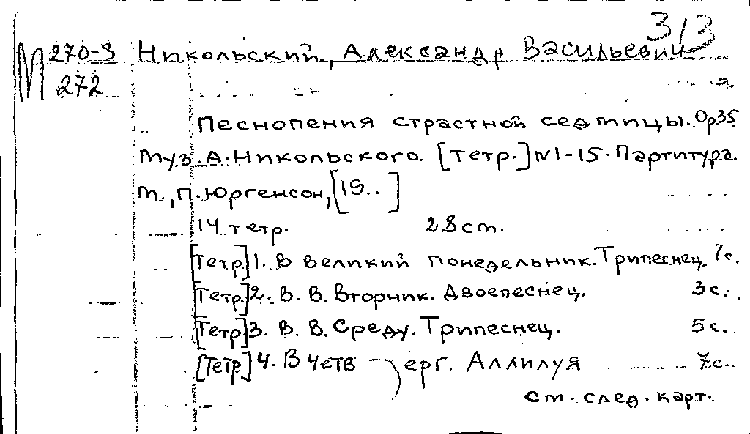 313
М 270-3 Никольский, Александр Васильевич
272
Песнопения страстной седмицы. Op35
Муз. А. Никольского. [Тетр.] №1-15. Партитура.
М., П. Юргенсон, [19..]
14 тетр. 28 ст.
[Тетр.] 1. В великий понедельник. Трипеснец. 7с.
[Тетр.] 2. В. В. Вторник. Двоепеснец. 3с.
[Тетр.] 3. В. В. Среду. Трипеснец. 5с.
[Тетр.] 4. В четв ерг. Аллилуя 7с.
см. след. карт.